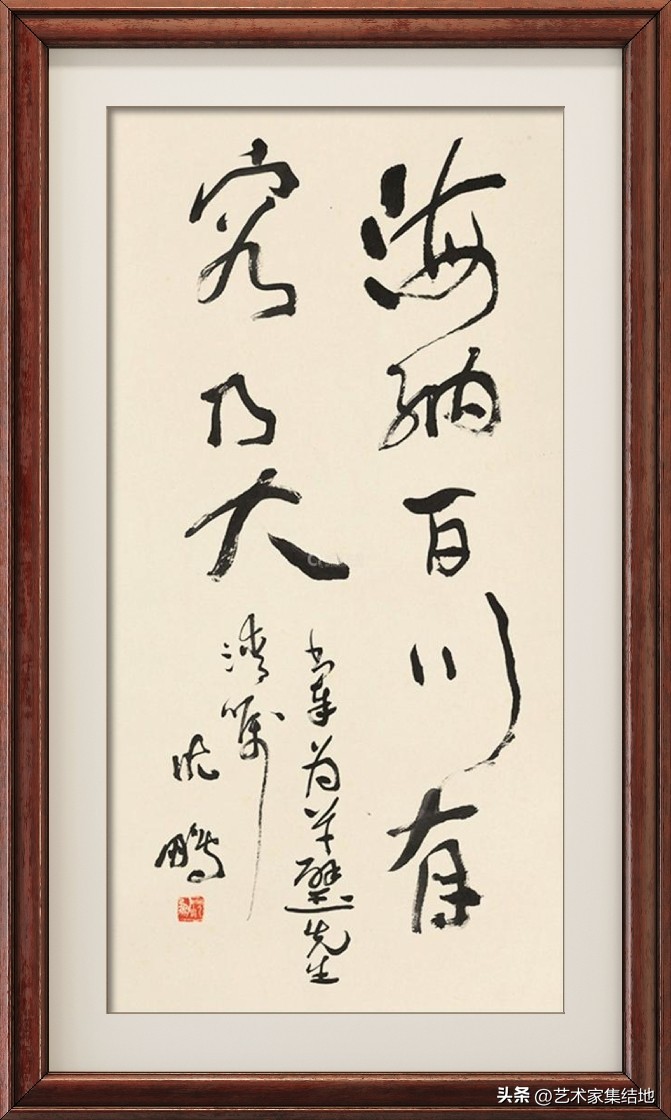 海纳百川有
容乃大
书奉为
先生
清嘱
沈鹏
头条 @艺术家集结地